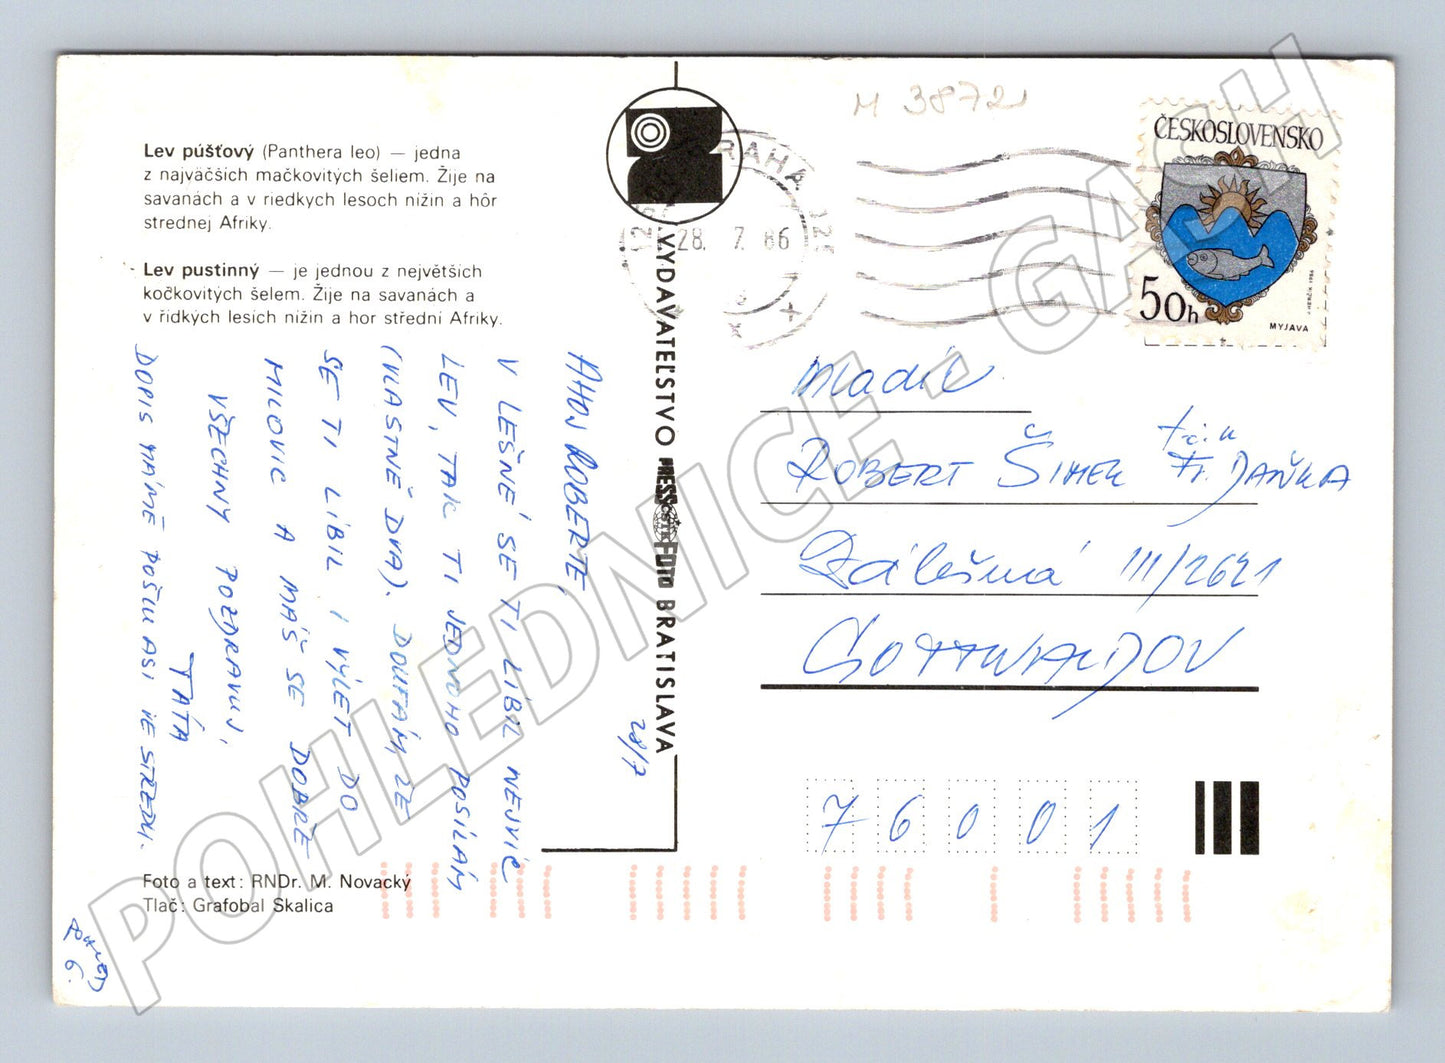 Lev púšťový (Panthera leo) — jedna
z najväčších mačkovitých šeliem. Žije na
savanách a v riedkych lesoch nížin a hôr
strednej Afriky.
Lev pustinný — je jednou z největších
kočkovitých šelem. Žije na savanách a
v řídkých lesích nížin a hor střední Afriky.
AHOJ ROBERTE,
V LEŠNÉ SE TI LÍBIL NEJVÍC
LEV, TAK TI JEDNOHO POSÍLÁM
(VLASTNĚ DVA). DOUFÁM, ŽE
SE TI LÍBIL I VÝLET DO
MILOVIC A MÁŠ SE DOBŘE
VŠECHNY POZDRAVUJ,
TÁTA
DOPIS MÁMĚ POŠLU ASI VE STŘEDU.
28/7
Foto a text: RNDr. M. Novacký
Tlač: Grafobal Skalica
6.
VYDAVATEĽSTVO PRESSFOTO BRATISLAVA
PRAHA
28. 7. 86
M 3872
ČESKOSLOVENSKO
50h
MYJAVA
Mladík
ROBERT ŠIMEK t.č. u Fr. DAŇKA
Zálešná III/2621
GOTTWALDOV
76001
POHLEDNICE . GASH